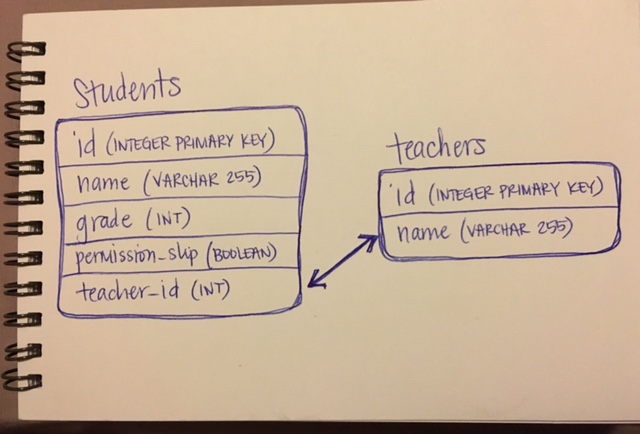 Students
id (INTEGER PRIMARY KEY)
name (VARCHAR 255)
grade (INT)
permission_slip (BOOLEAN)
teacher_id (INT)
teachers
id (INTEGER PRIMARY KEY)
name (VARCHAR 255)